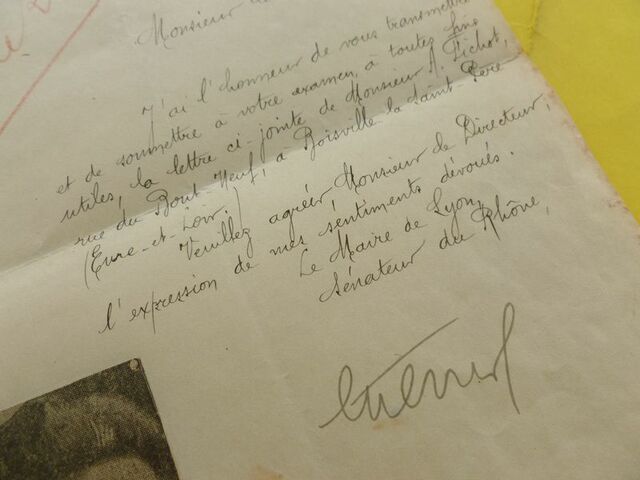 Monsieur
J'ai l'honneur de vous transmettre
et de soumettre à votre examen, à toutes fins
utiles, la lettre ci-jointe de Monsieur A. Pichot,
rue du Bout Neuf, à Boisville la Saint Père
(Eure-et-Loir)
Veuillez agréer, Monsieur de Directeur,
l'expression de mes sentiments dévoués.
Le Maire de Lyon,
Sénateur du Rhône,